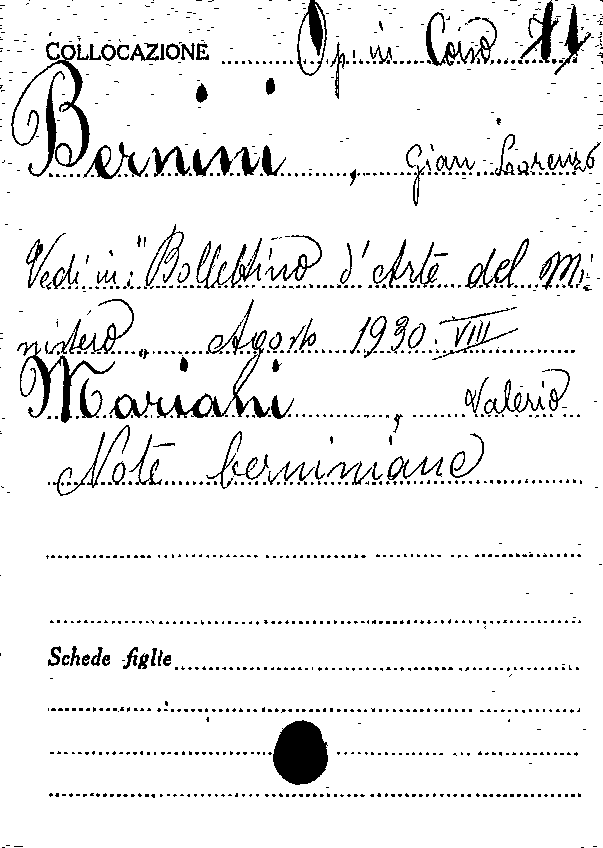 COLLOCAZIONE Op. in Corso
Bernini, Gian Lorenzo
Vedi in: "Bollettino d'Arte del Mi-
nistero„ Agosto 1930. VIII
Mariani, Valerio
Note berniniane
Schede figlie